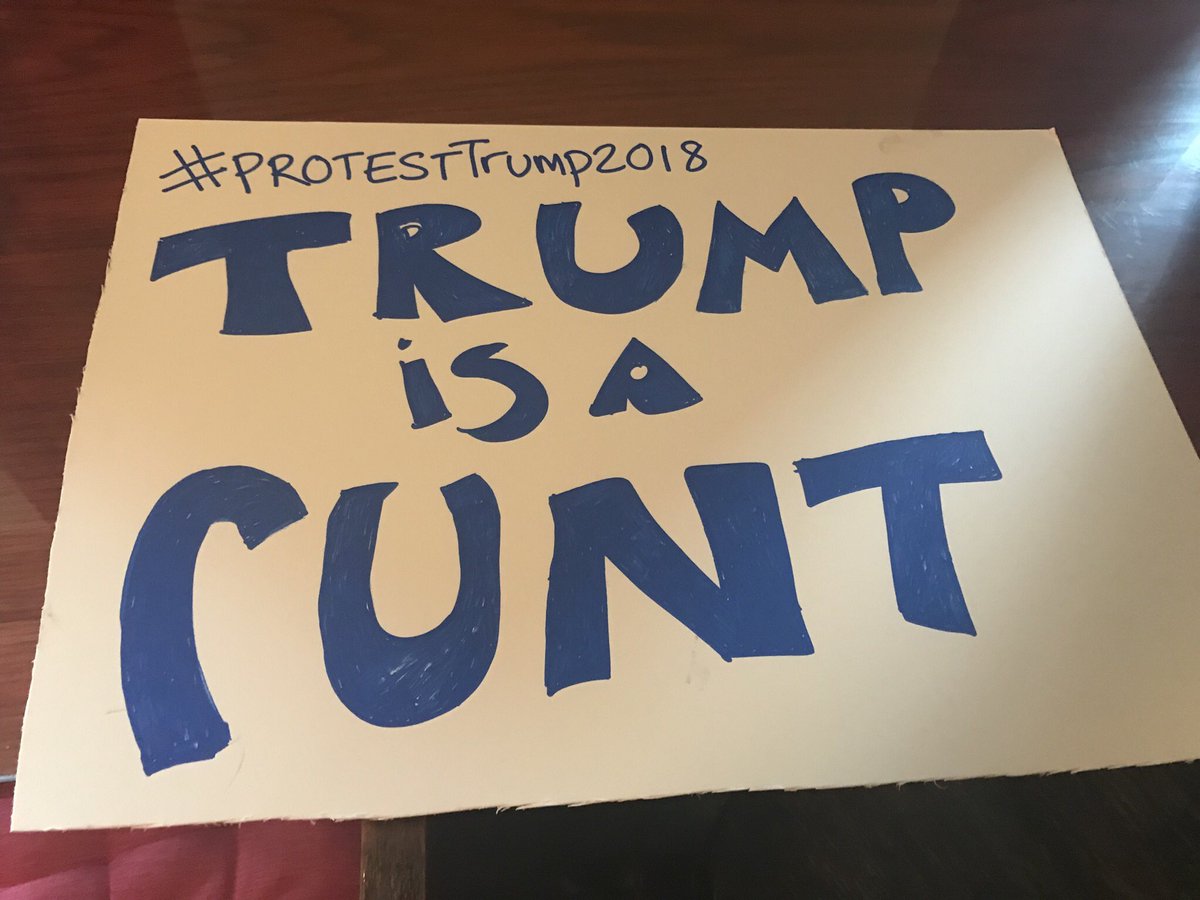 #PROTESTTrump2018
TRUMP
iS A
CUNT